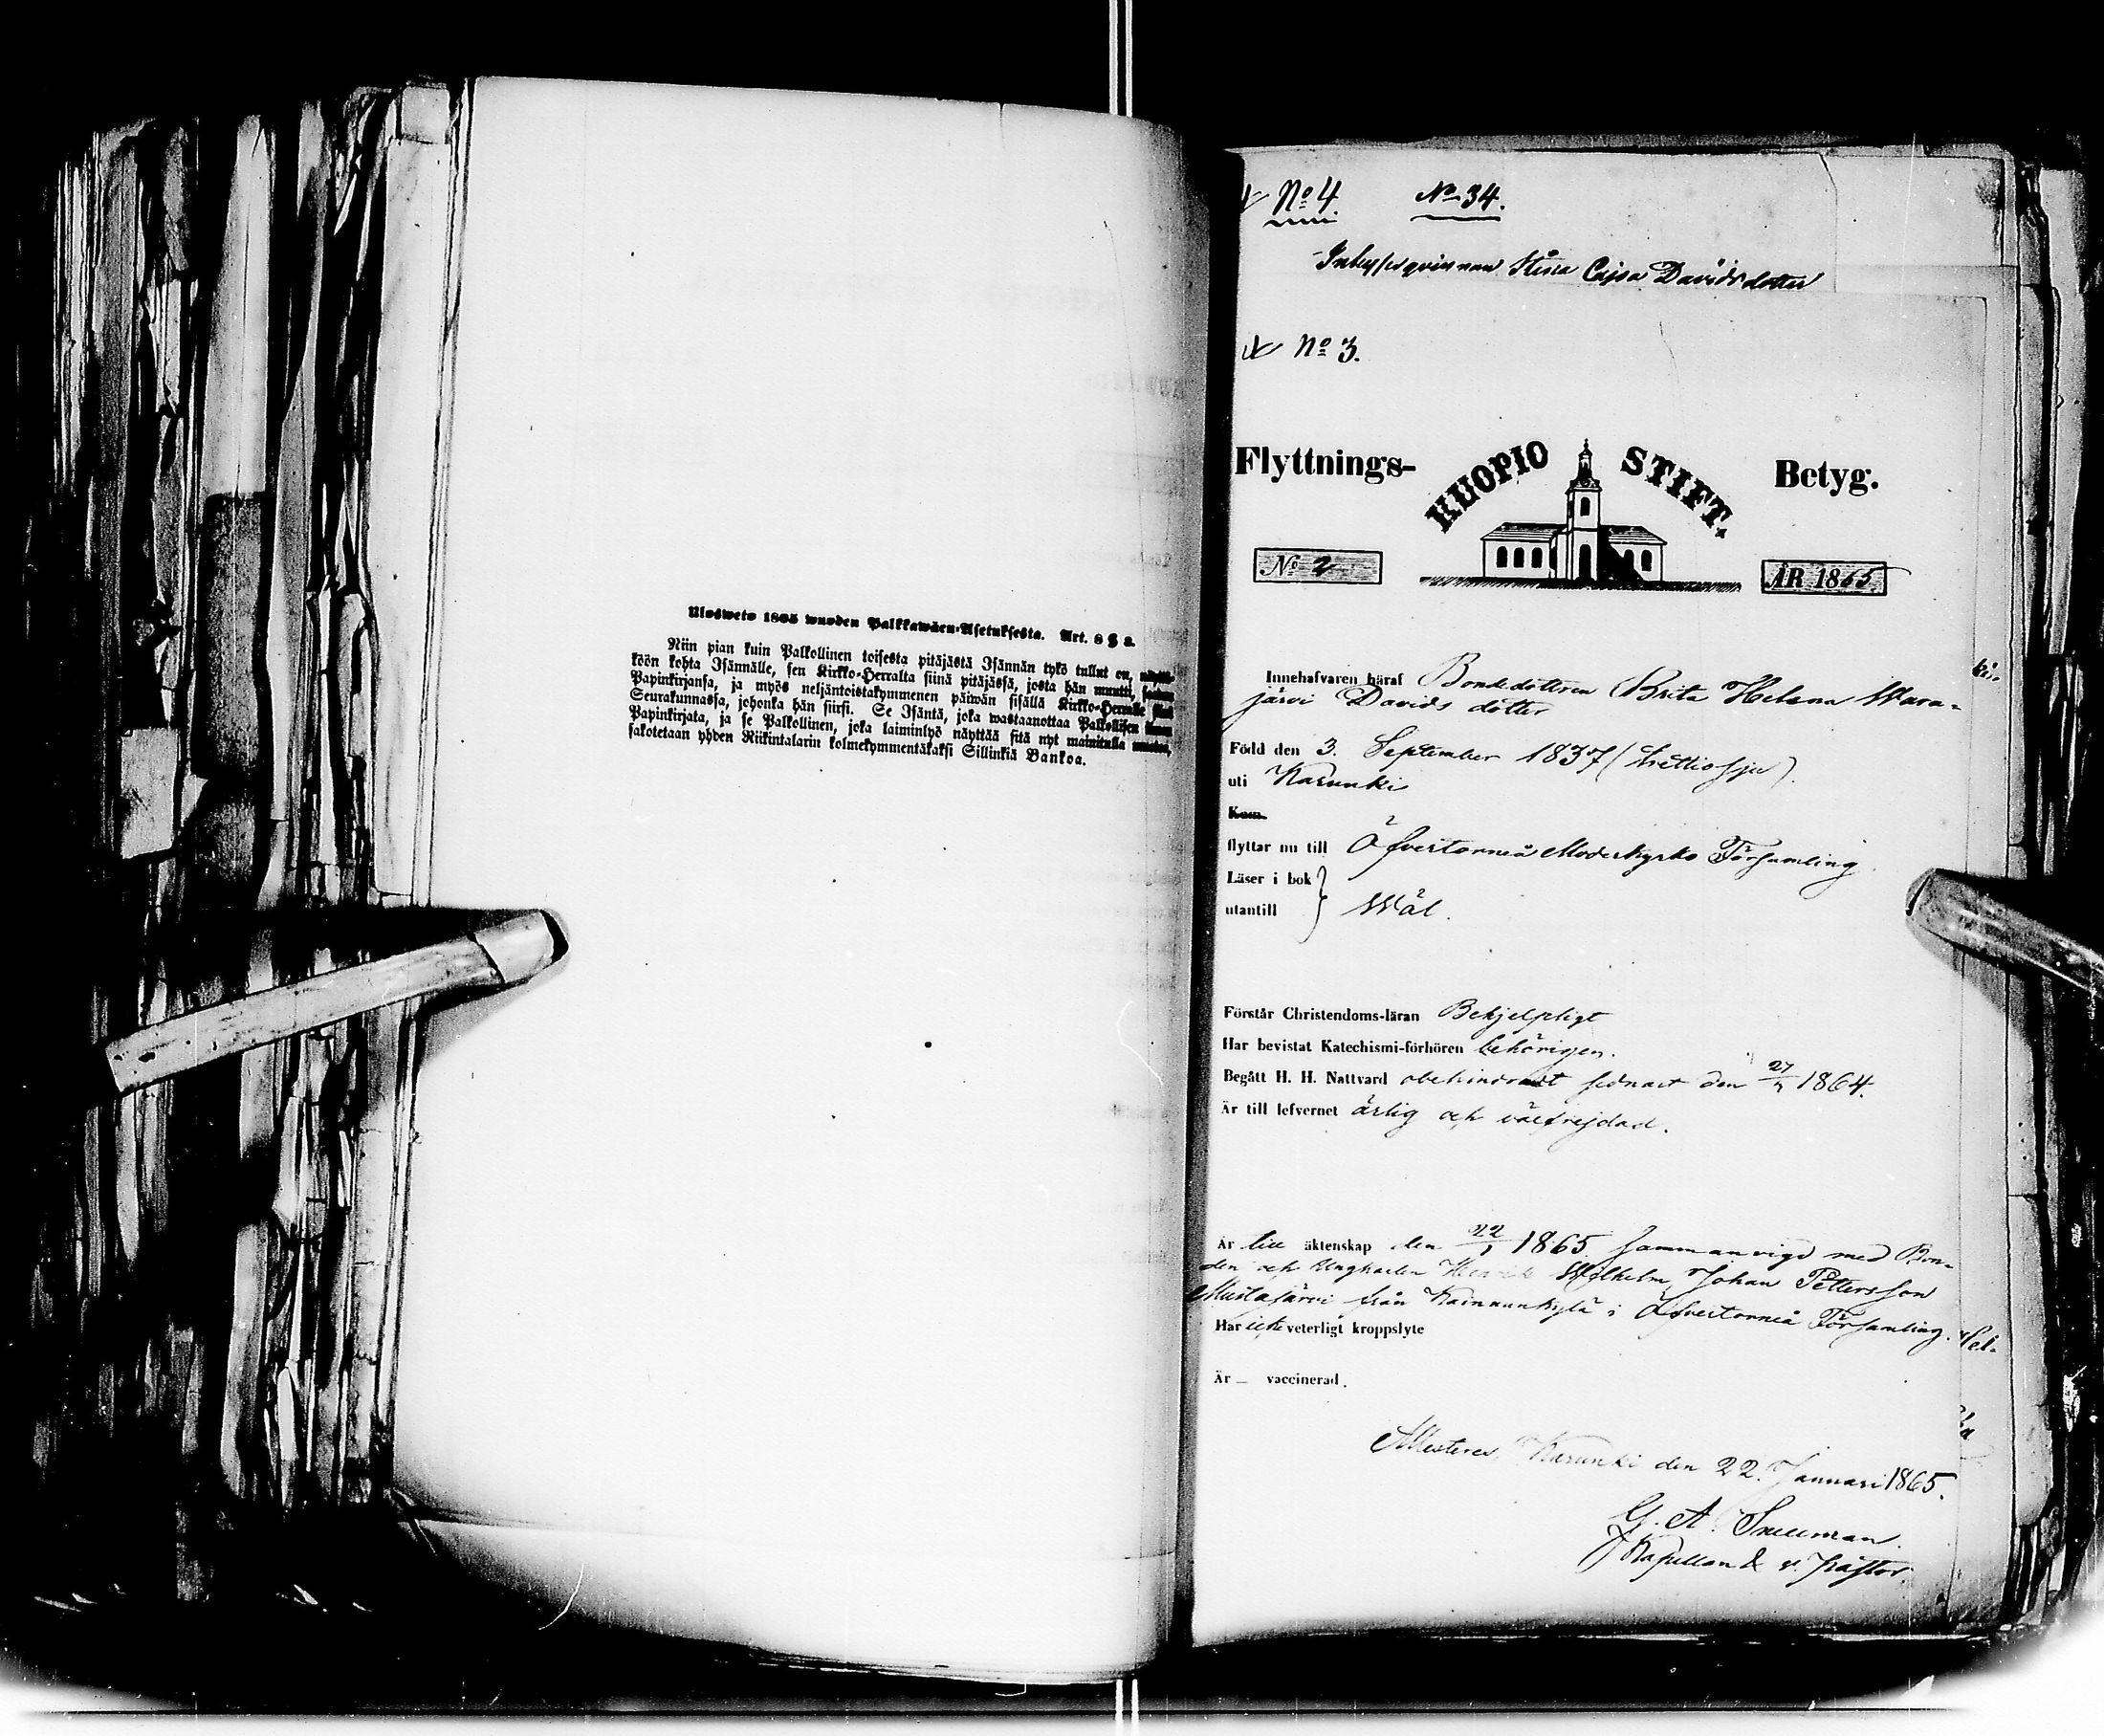 Ulosweto 1805 wuoden Palkkawäen-Asetuksesta. Art. 8 § 2.
Niin pian kuin Palkollinen toisesta pitäjästä Isännän tykö tullut on,
köön kohta Isännälle, sen Kirkko-Herralta siinä pitäjässä, josta hän muutti,
Papinkirjansa, ja myös neljäntoistakymmenen päiwän sisällä Kirkko-Herralle
Seurakunnassa, johonka hän siirsi. Se Isäntä, joka wastaanottaa Palkollisen
Papinkirjata, ja se Palkollinen, joka laiminlyö näyttää sitä nyt mainitulla
sakotetaan yhden Riikintalarin kolmekymmentäkaksi Sillinkiä Bankoa.
No 4. No 34.
Inhyses qvinnan Stina Cajsa Davidsdotter
No 3.
Flyttnings- KUOPIO STIFT. Betyg.
No 2 ÅR 1865
Innehafvaren häraf Bondedottren Brita Helena Wara-
järvi Davids dotter
Född den 3. September 1837 (trettiosju).
uti Karunki
Kom.
flyttar nu till Öfvertorneå Moderkyrko Församling
Läser i bok
utantill } Wäl.
Förstår Christendoms-läran Behjelpligt
Har bevistat Katechismi-förhören behörigen.
Begått H. H. Nattvard obehindradt sednast den 27/ 1864.
Är till lefvernet ärlig och välfrejdad.
Är till äktenskap den 22/1 1865 sammanvigd med Bon-
den och Ungkarlen Henrik Wilhelm Johan Pettersson
Mustajärvi från Kainuunkylä i Öfvertorneå Församling.
Har icke veterligt kroppslyte
Är — vaccinerad.
Attesteras, Karunki den 22. Januari 1865.
G. A. Snellman.
Kapellan & v. Pastor.